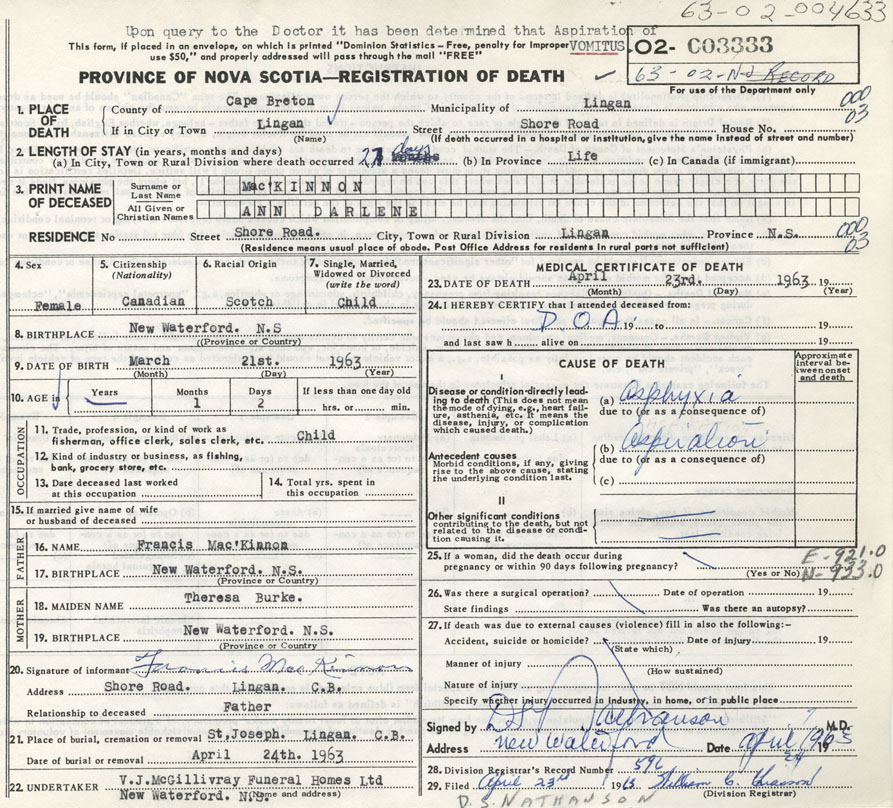 63-02-004633
Upon query to the Doctor it has been determined that Aspiration of
This form, if placed in an envelope, on which is printed "Dominion Statistics – Free, penalty for Improper VOMITUS.
use $50," and properly addressed will pass through the mail "FREE"
02- C03333
PROVINCE OF NOVA SCOTIA—REGISTRATION OF DEATH
63-02-No RECORD
For use of the Department only
1. PLACE OF DEATH
County of Cape Breton Municipality of Lingan 000
If in City or Town Lingan Street Shore Road House No. 03
(Name) (If death occurred in a hospital or institution, give the name instead of street and number)
2. LENGTH OF STAY (in years, months and days)
(a) In City, Town or Rural Division where death occurred days (b) In Province Life (c) In Canada (if immigrant)
3. PRINT NAME OF DECEASED
Surname or Last Name Mac'KINNON
All Given or Christian Names ANN DARLENE
RESIDENCE No Street Shore Road. City, Town or Rural Division Lingan Province N.S. 000 03
(Residence means usual place of abode. Post Office Address for residents in rural parts not sufficient)
4. Sex Female
5. Citizenship (Nationality) Canadian
6. Racial Origin Scotch
7. Single, Married, Widowed or Divorced (write the word) Child
8. BIRTHPLACE New Waterford. N.S
(Province or Country)
9. DATE OF BIRTH March 21st. 1963
(Month) (Day) (Year)
10. AGE in Years Months 1 Days 2 If less than one day old hrs. or min.
OCCUPATION
11. Trade, profession, or kind of work as fisherman, office clerk, sales clerk, etc. Child
12. Kind of industry or business, as fishing, bank, grocery store, etc.
13. Date deceased last worked at this occupation
14. Total yrs. spent in this occupation
15. If married give name of wife or husband of deceased
FATHER
16. NAME Francis Mac'Kinnon
17. BIRTHPLACE New Waterford. N.S.
(Province or Country)
MOTHER
18. MAIDEN NAME Theresa Burke.
19. BIRTHPLACE New Waterford. N.S.
(Province or Country
20. Signature of informant Francis MacKinnon
Address Shore Road. Lingan. C.B.
Relationship to deceased Father
21. Place of burial, cremation or removal St.Joseph. Lingan. C.B.
Date of burial or removal April 24th. 1963
22. UNDERTAKER V.J.McGillivray Funeral Homes Ltd
New Waterford. N.S. (Name and address)
MEDICAL CERTIFICATE OF DEATH
23. DATE OF DEATH April 23rd. 1963 19
(Month) (Day) (Year)
24. I HEREBY CERTIFY that I attended deceased from:
D.O.A. 19 to 19
and last saw h alive on 19
CAUSE OF DEATH
Approximate interval between onset and death
I
Disease or condition directly leading to death (This does not mean the mode of dying, e.g., heart failure, asthenia, etc. It means the disease, injury, or complication which caused death.)
(a) Asphyxia
due to (or as a consequence of)
Antecedent causes
Morbid conditions, if any, giving rise to the above cause, stating the underlying condition last.
(b) Aspiration
due to (or as a consequence of)
(c)
II
Other significant conditions
contributing to the death, but not related to the disease or condition causing it
25. If a woman, did the death occur during
pregnancy or within 90 days following pregnancy?
(Yes or No)
E-921.0
N-933.0
26. Was there a surgical operation? Date of operation 19
State findings Was there an autopsy?
27. If death was due to external causes (violence) fill in also the following:—
Accident, suicide or homicide? Date of injury 19
(State which)
Manner of injury
(How sustained)
Nature of injury
Specify whether injury occurred in industry, in home, or in public place
Signed by Nathanson M.D.
Address New Waterford Date April 1963
28. Division Registrar's Record Number
29. Filed April 23rd 1963
(Division Registrar)
D. S. NATHANSON